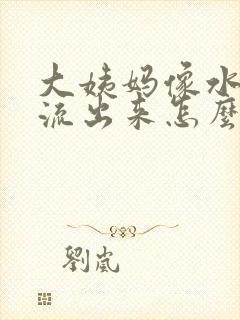 大姨妈像水
流出来怎麽
劉嵐